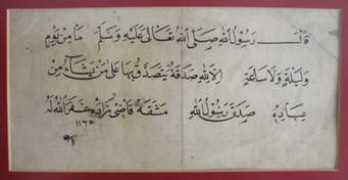 قال رسول الله صلى الله تعالى عليه وسلم ما من يوم
وليلة ولا ساعة الا لله صدقة يتصدق بها على من يشاء من
عباده صدق رسول الله مشقه قاضي زاده غفر الله له